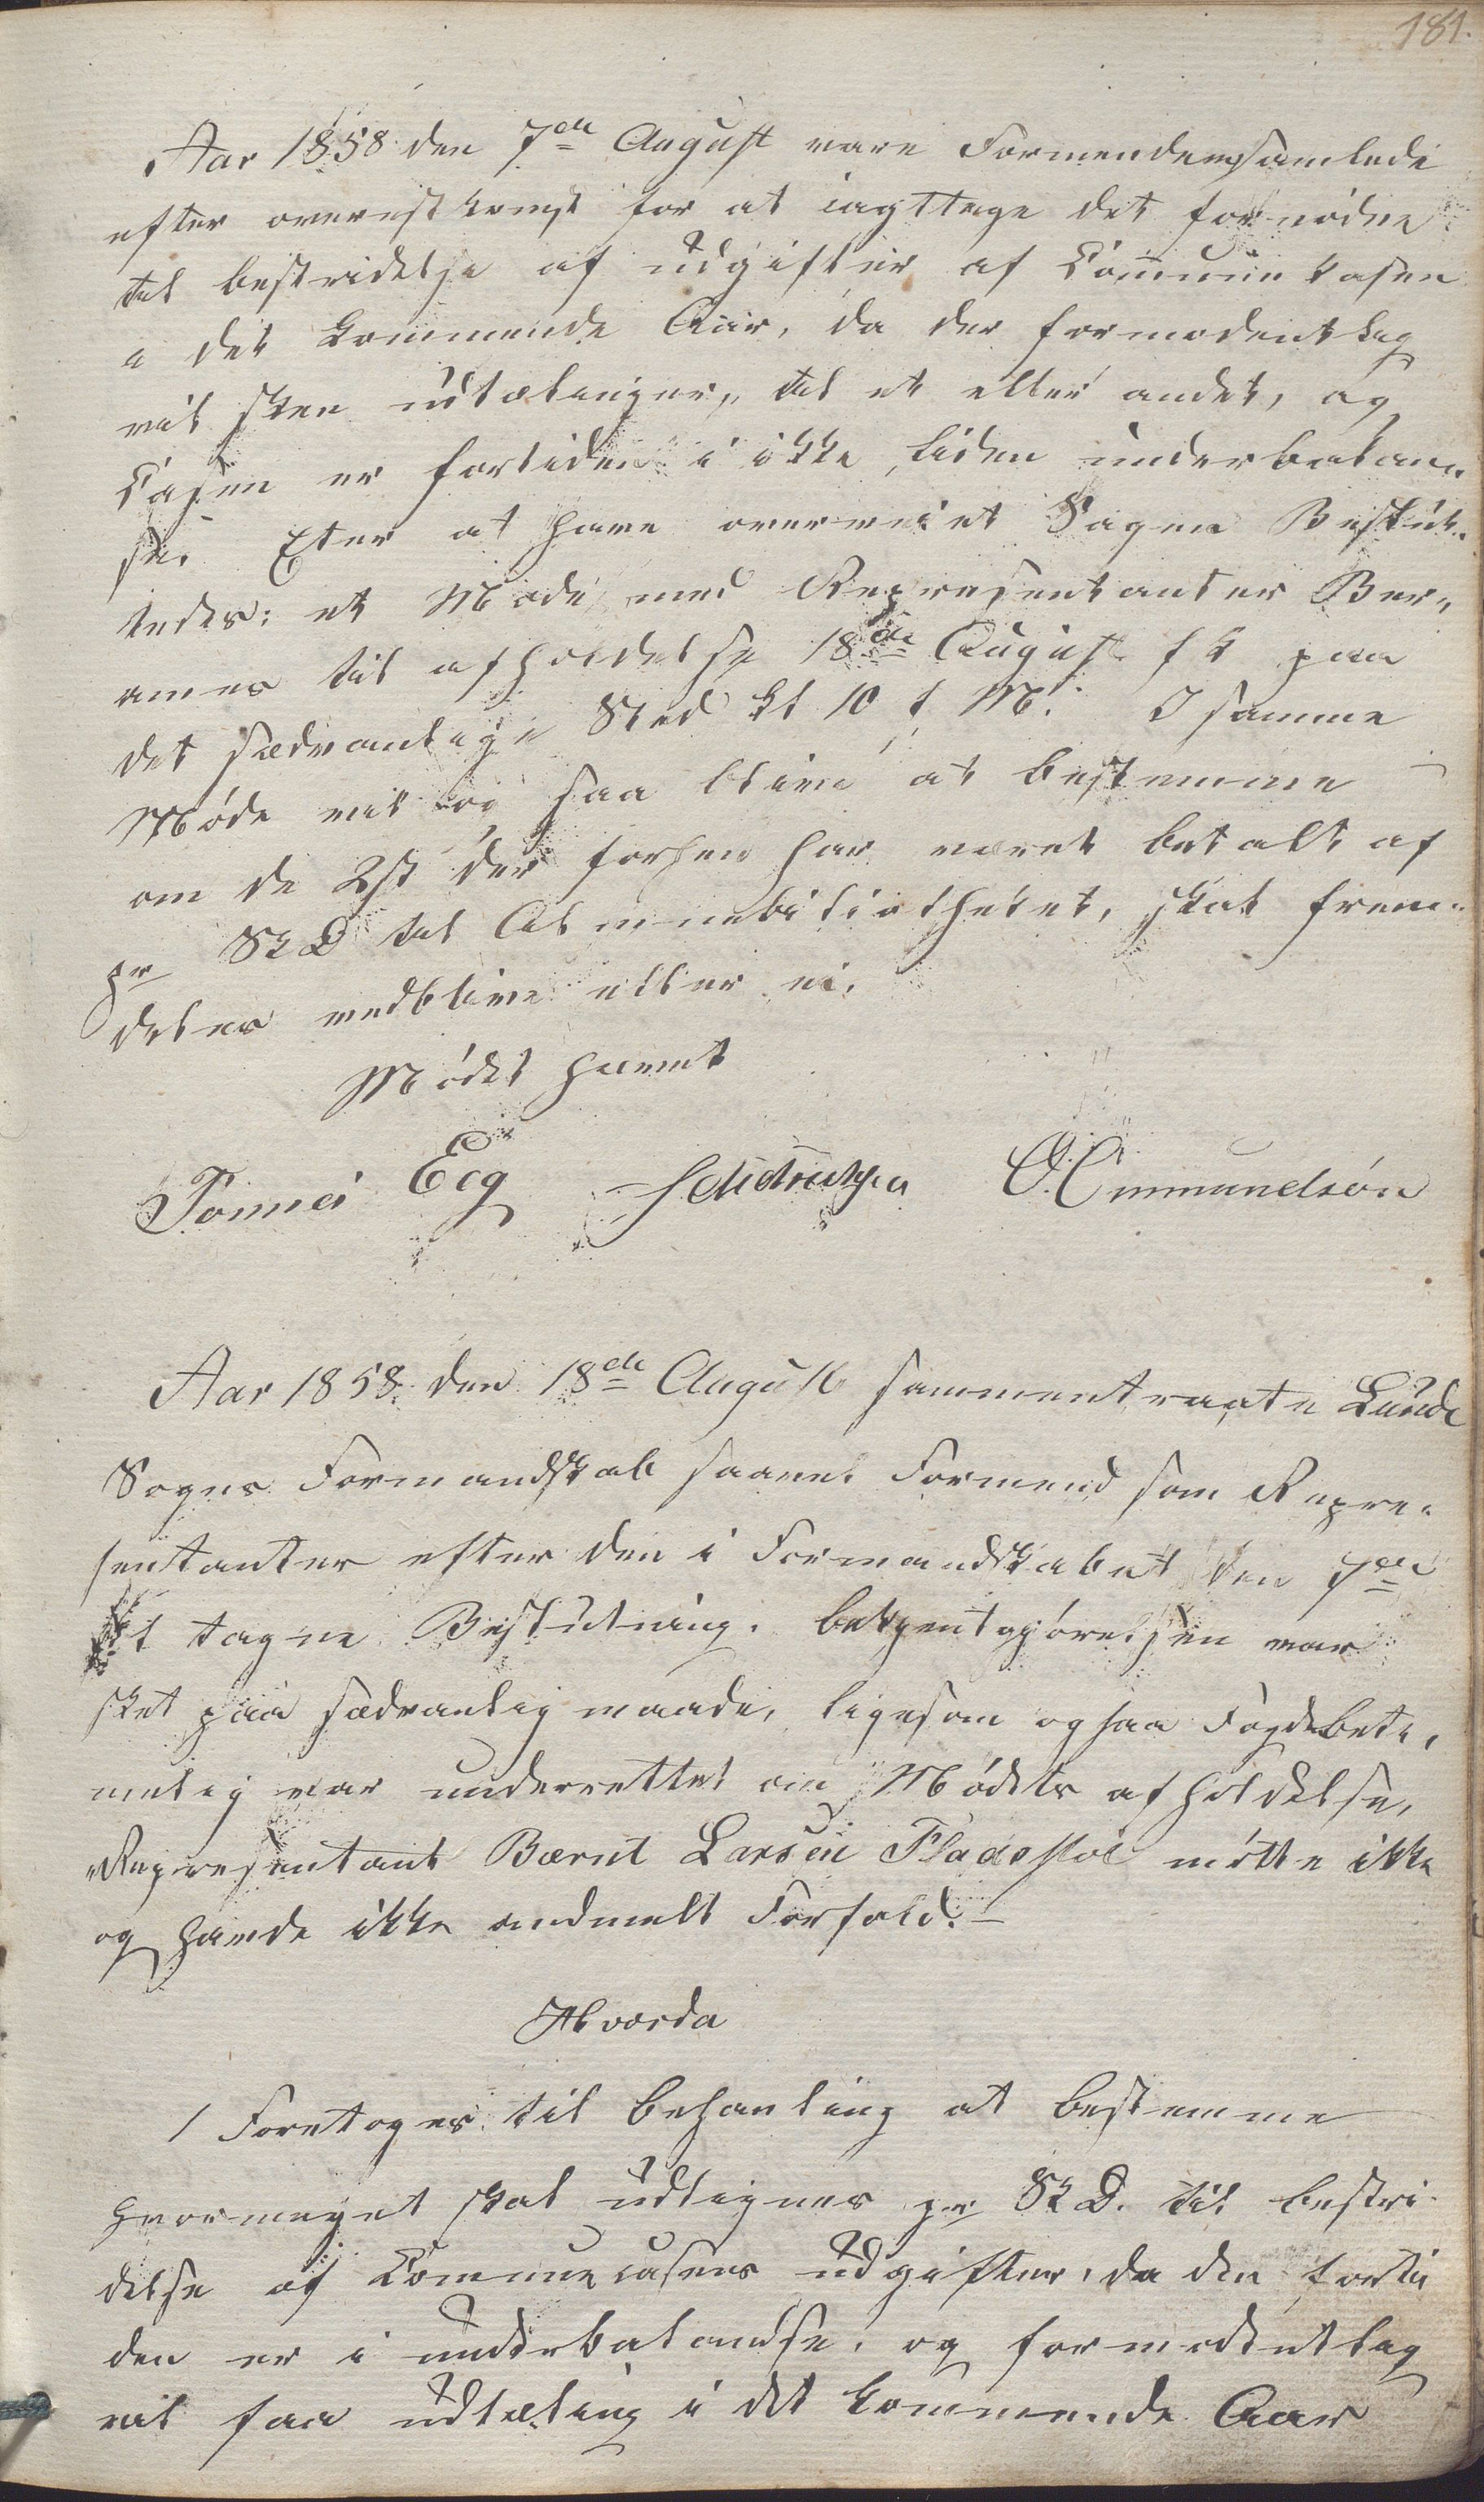 181.
Aar 1858 den 7de August vare Formendene samlede
efter overenstkomst for at iagttage det fornødne
tel bestridelse af udgifter af Commune Casen
i det kommende Aar, da der formodentleg
vil skee udtælinger, tel et eller andet, og
Casen er fortiden i ikke liden underbalan-
se. Efter at have overveiet Sagen Beslut-
tedes: et Møde med Representanter Ber-
ames til afholdelse 18de August f k paa
det sædvanlige Sted kl 10 f M. I samme
Møde vil og saa blive at bestemme
om de 2 sk der forhen har været betalt af
pr Sk D tel Almuebibliotheket, skal frem-
deles vedblive eller ei.
Mødet hævet
Tonnes Eeg O. Ommundsøn
Aar 1858 den 18de August sammentraate Lunde
Sogns Formandskab saavel Formend som Repre-
sentanter efter den i Formandskabet den 7de
tagne Beslutning. bekjentgjørelsen var
sket paa sædvanlig maade, ligesom ogsaa Fogden bete-
melig var underrettet om Mødets afholdelse,
Representant Bærnt Larsen Pladsstøl møtte ikke
og havde ikke andmelt Forfald. –
Hvorda
1 Foretoges til behanling at bestemme
hvormeget skal udlignes pr Sk D. til bestri-
delse af Communecasens udgifter, da den forti
den er i underbalandse, og formodentleg
vil faa udtæling i det kommende Aar